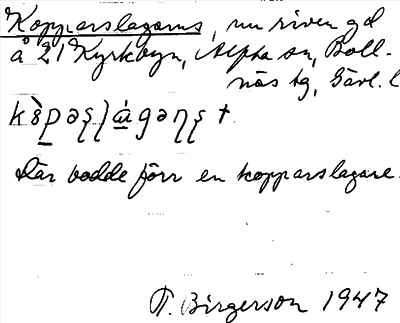 Kopparslagarns, nu riven gd
å 21 Kyrkbyn, Alfta sn, Boll-
näs tg, Gävl. l
kò̱pəʂḷá̱gəɳʂ +
Där bodde förr en kopparslagare.
T. Birgerson 1947